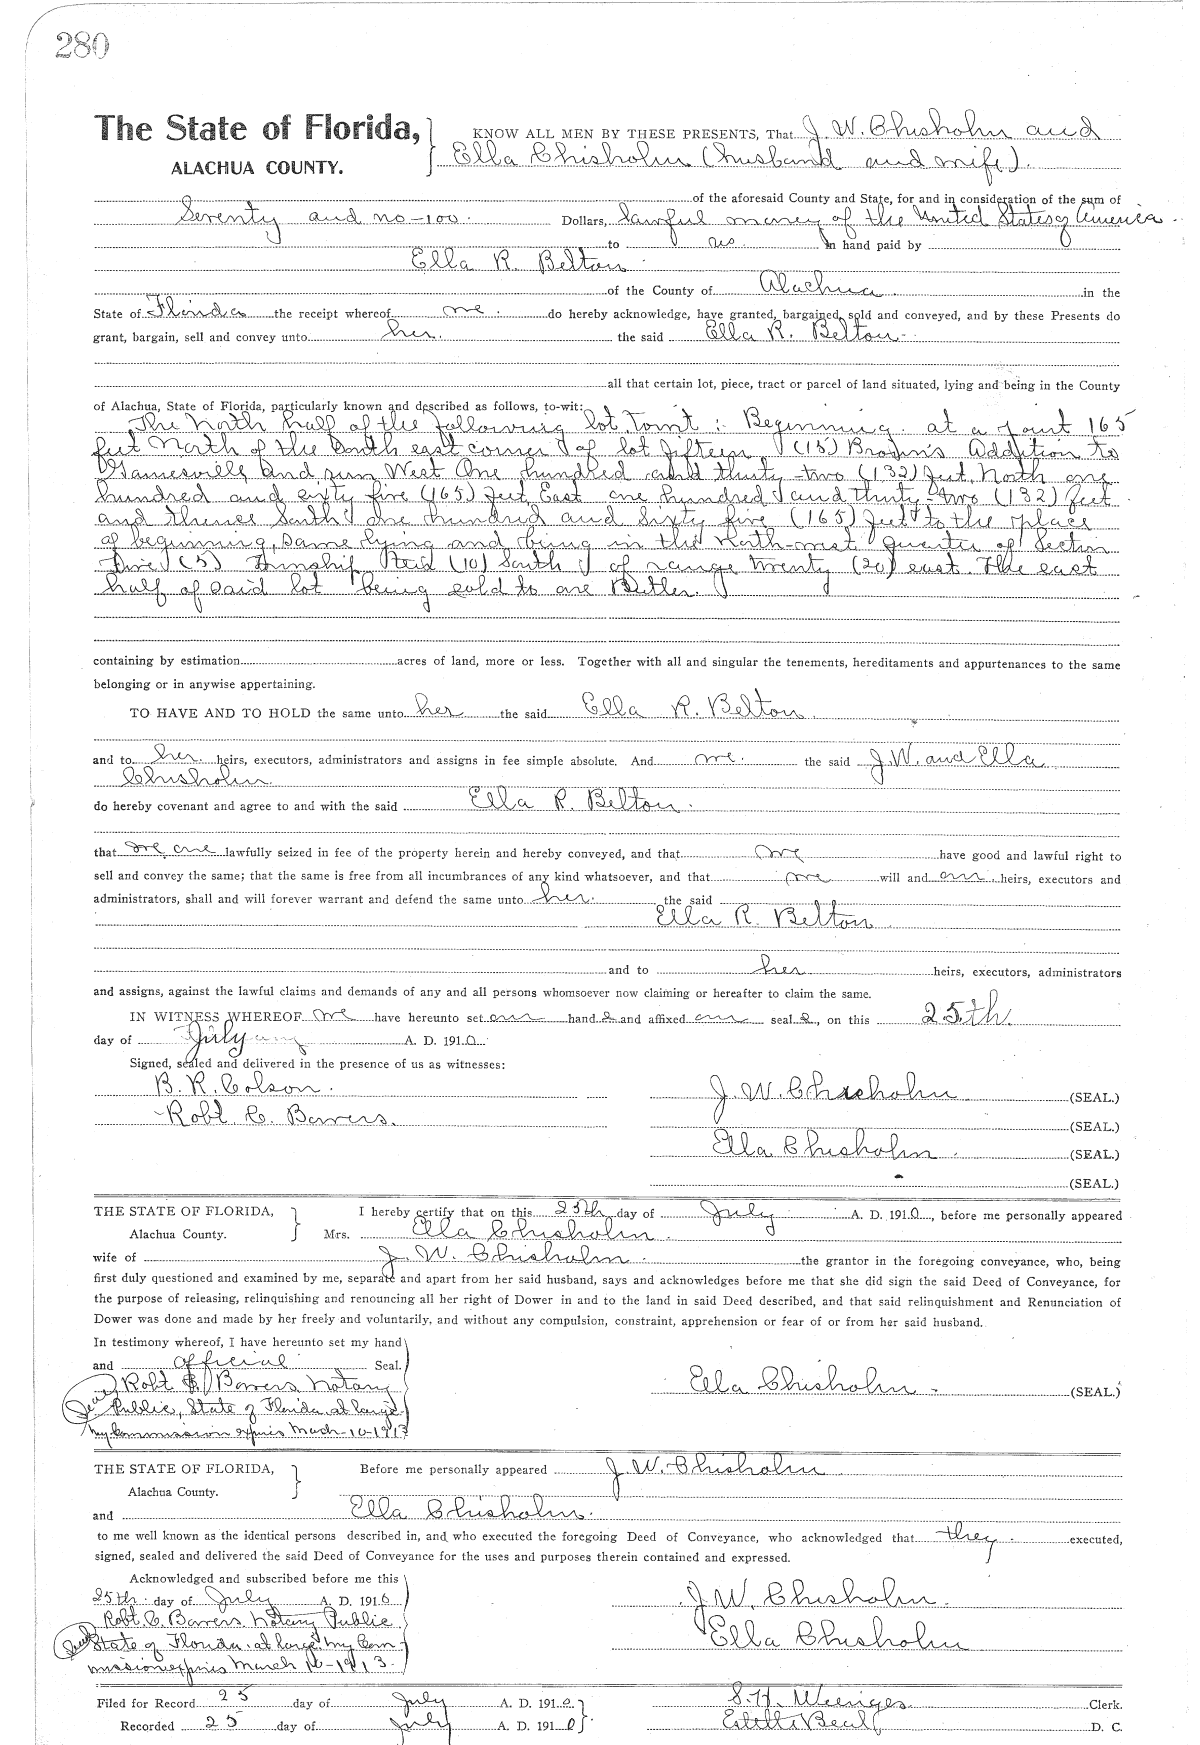 280
The State of Florida, KNOW ALL MEN BY THESE PRESENTS, That J. W. Chisholm and
ALACHUA COUNTY. Ella Chisholm (husband and wife).
of the aforesaid County and State, for and in consideration of the sum of
Seventy and no-100. Dollars, lawful money of the United States of America
to us In hand paid by
Ella R. Belton
of the County of Alachua in the
State of Florida the receipt whereof we do hereby acknowledge, have granted, bargained, sold and conveyed, and by these Presents do
grant, bargain, sell and convey unto her. the said Ella R. Belton
all that certain lot, piece, tract or parcel of land situated, lying and being in the County
of Alachua, State of Florida, particularly known and described as follows, to-wit:
The North half of the following lot, Towit: Beginning at a point 165
feet North of the South east corner of lot fifteen (15) Brown's Addition to
Gainesville, and run West One hundred and thirty-two (132) feet, North one
hundred and sixty five (165) feet, East one hundred and thirty-two (132) feet
and thence South one hundred and Sixty five (165) feet to the place
of beginning, same lying and being in the North-west quarter of Section
five (5) Township (10) South of range twenty (20) east. The east
half of said lot being sold to one Butler.
containing by estimation acres of land, more or less. Together with all and singular the tenements, hereditaments and appurtenances to the same
belonging or in anywise appertaining.
TO HAVE AND TO HOLD the same unto her the said Ella R. Belton
and to her heirs, executors, administrators and assigns in fee simple absolute. And we the said J. W. and Ella
Chisholm
do hereby covenant and agree to and with the said Ella R. Belton.
that we are lawfully seized in fee of the property herein and hereby conveyed, and that we have good and lawful right to
sell and convey the same; that the same is free from all incumbrances of any kind whatsoever, and that we will and our heirs, executors and
administrators, shall and will forever warrant and defend the same unto her the said
Ella R. Belton
and to her heirs, executors, administrators
and assigns, against the lawful claims and demands of any and all persons whomsoever now claiming or hereafter to claim the same.
IN WITNESS WHEREOF we have hereunto set our hand s and affixed our seal s, on this 25th.
day of July A. D. 1910
Signed, sealed and delivered in the presence of us as witnesses:
B. R. Colson. J. W. Chisholm (SEAL.)
Robt. C. Bowers. (SEAL.)
Ella Chisholm (SEAL.)
(SEAL.)
THE STATE OF FLORIDA, I hereby certify that on this 25th day of July A. D. 1910, before me personally appeared
Alachua County. Mrs. Ella Chisholm
wife of J. W. Chisholm the grantor in the foregoing conveyance, who, being
first duly questioned and examined by me, separate and apart from her said husband, says and acknowledges before me that she did sign the said Deed of Conveyance, for
the purpose of releasing, relinquishing and renouncing all her right of Dower in and to the land in said Deed described, and that said relinquishment and Renunciation of
Dower was done and made by her freely and voluntarily, and without any compulsion, constraint, apprehension or fear of or from her said husband.
In testimony whereof, I have hereunto set my hand
and official Seal.
Robt Bowers Notary Ella Chisholm (SEAL.)
Seal Public, State of Florida at large
My Commission expires March-10-1913
THE STATE OF FLORIDA, Before me personally appeared J. W. Chisholm
Alachua County.
and Ella Chisholm
to me well known as the identical persons described in, and who executed the foregoing Deed of Conveyance, who acknowledged that they executed,
signed, sealed and delivered the said Deed of Conveyance for the uses and purposes therein contained and expressed.
Acknowledged and subscribed before me this
25th day of July A. D. 1910 J. W. Chisholm
Robt. C. Bowers. Notary Public
Seal State of Florida at large My Com- Ella Chisholm
mission expires March 10-1913.
Filed for Record 25 day of July A. D. 1910 S. H. Wienges Clerk.
Recorded 25 day of July A. D. 1910 Estelle Beal D. C.